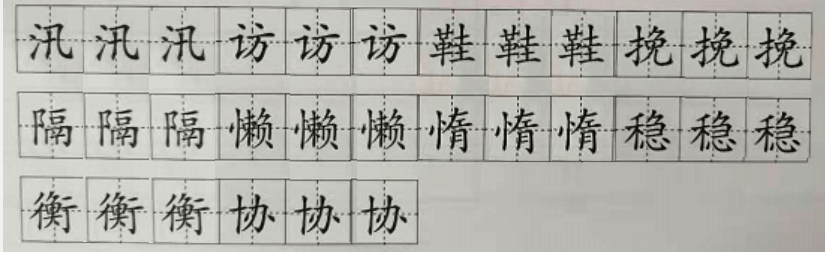 汛汛汛访访访鞋鞋鞋挽挽挽
隔隔隔懒懒懒惰惰惰稳稳稳
衡衡衡协协协